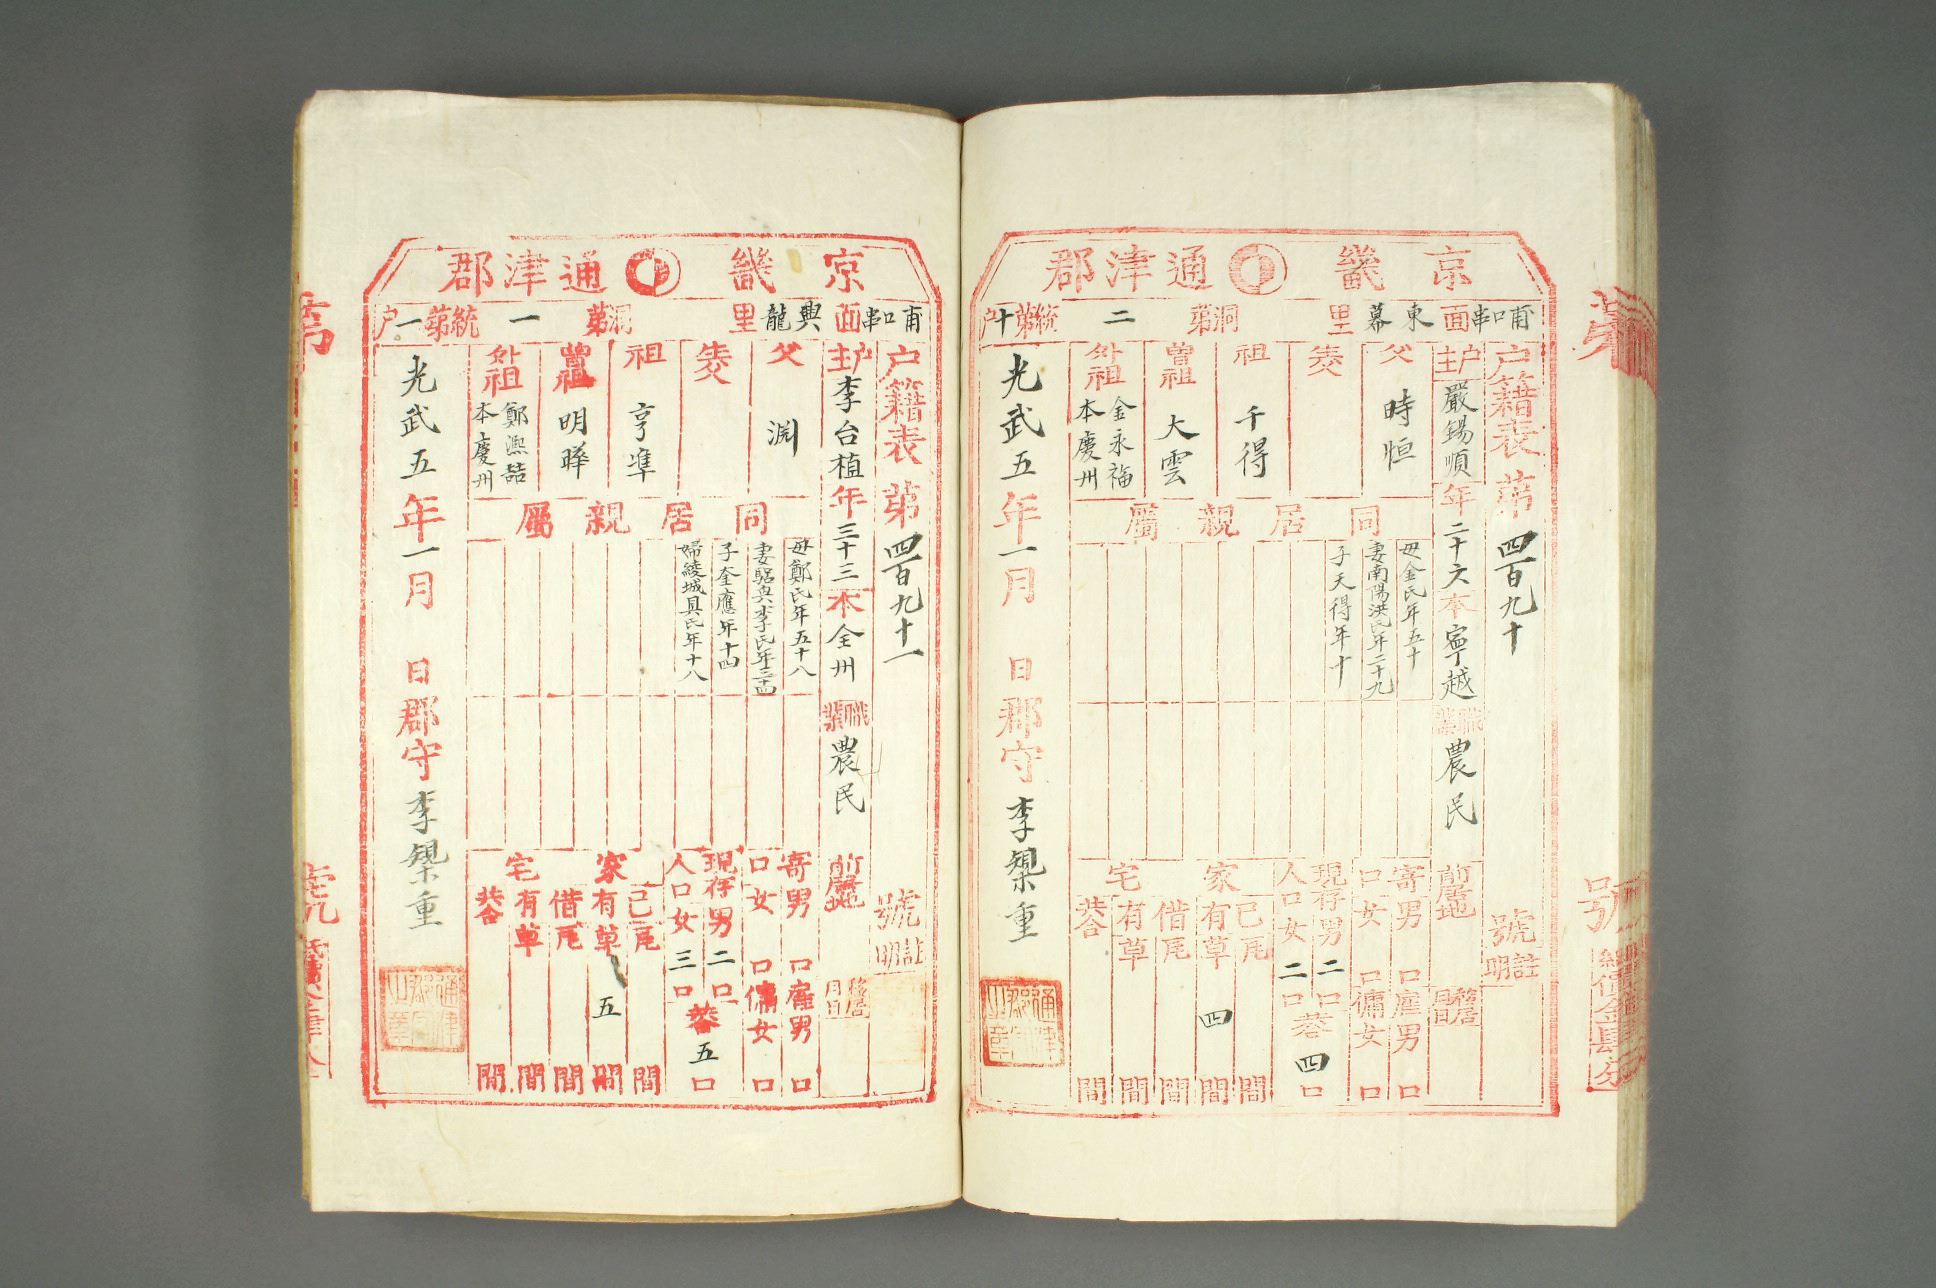 京畿 通津郡
甫口串面 東幕里 洞第二統第十户
户籍表 第四百九十號
註明
户主 嚴錫順 年二十六 本寧越 職業農民 前居地
移居月日
父 時恒
祖 千得
曾祖 大雲
外祖 金永福
本慶州
同居親屬
母金氏年五十
妻南陽洪氏年二十九
子天得年十
寄口 男口 女口
口雇男口
口傭女口
現存人口 男二口 女二口 共四口
家宅
己有瓦 間
有草 四間
借有瓦 間
有草 間
共合 間
光武五年一月 日郡守李 重
京畿 通津郡
甫口串面 興龍里 洞第一統第一户
户籍表 第四百九十一號
註明
户主 李台植 年三十三 本全州 職業農民 前居地
移居月日
父 渊
祖 亨準
曾祖 明曄
外祖 鄭
本慶州
同居親屬
母鄭氏年五十八
妻 李氏年三十四
子奎應年十四
婦綾城具氏年十八
寄口 男口 女口
口雇男口
口傭女口
現存人口 男二口 女三口 共五口
家宅
己有瓦 間
有草 五間
借有瓦 間
有草 間
共合 間
光武五年一月 日郡守李 重